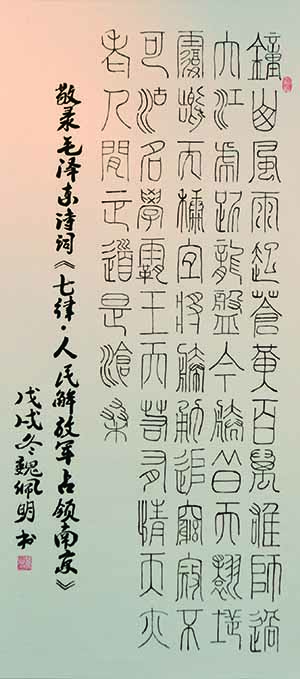 鐘山風雨起蒼黃百萬雄師過
大江虎踞龍盤今勝昔天翻地
覆慨而慷宜將賸勇追窮寇不
可沽名學霸王天若有情天亦
老人間正道是滄桑
敬录毛泽东诗词《七律·人民解放军占领南京》
戊戌冬魏佩明书